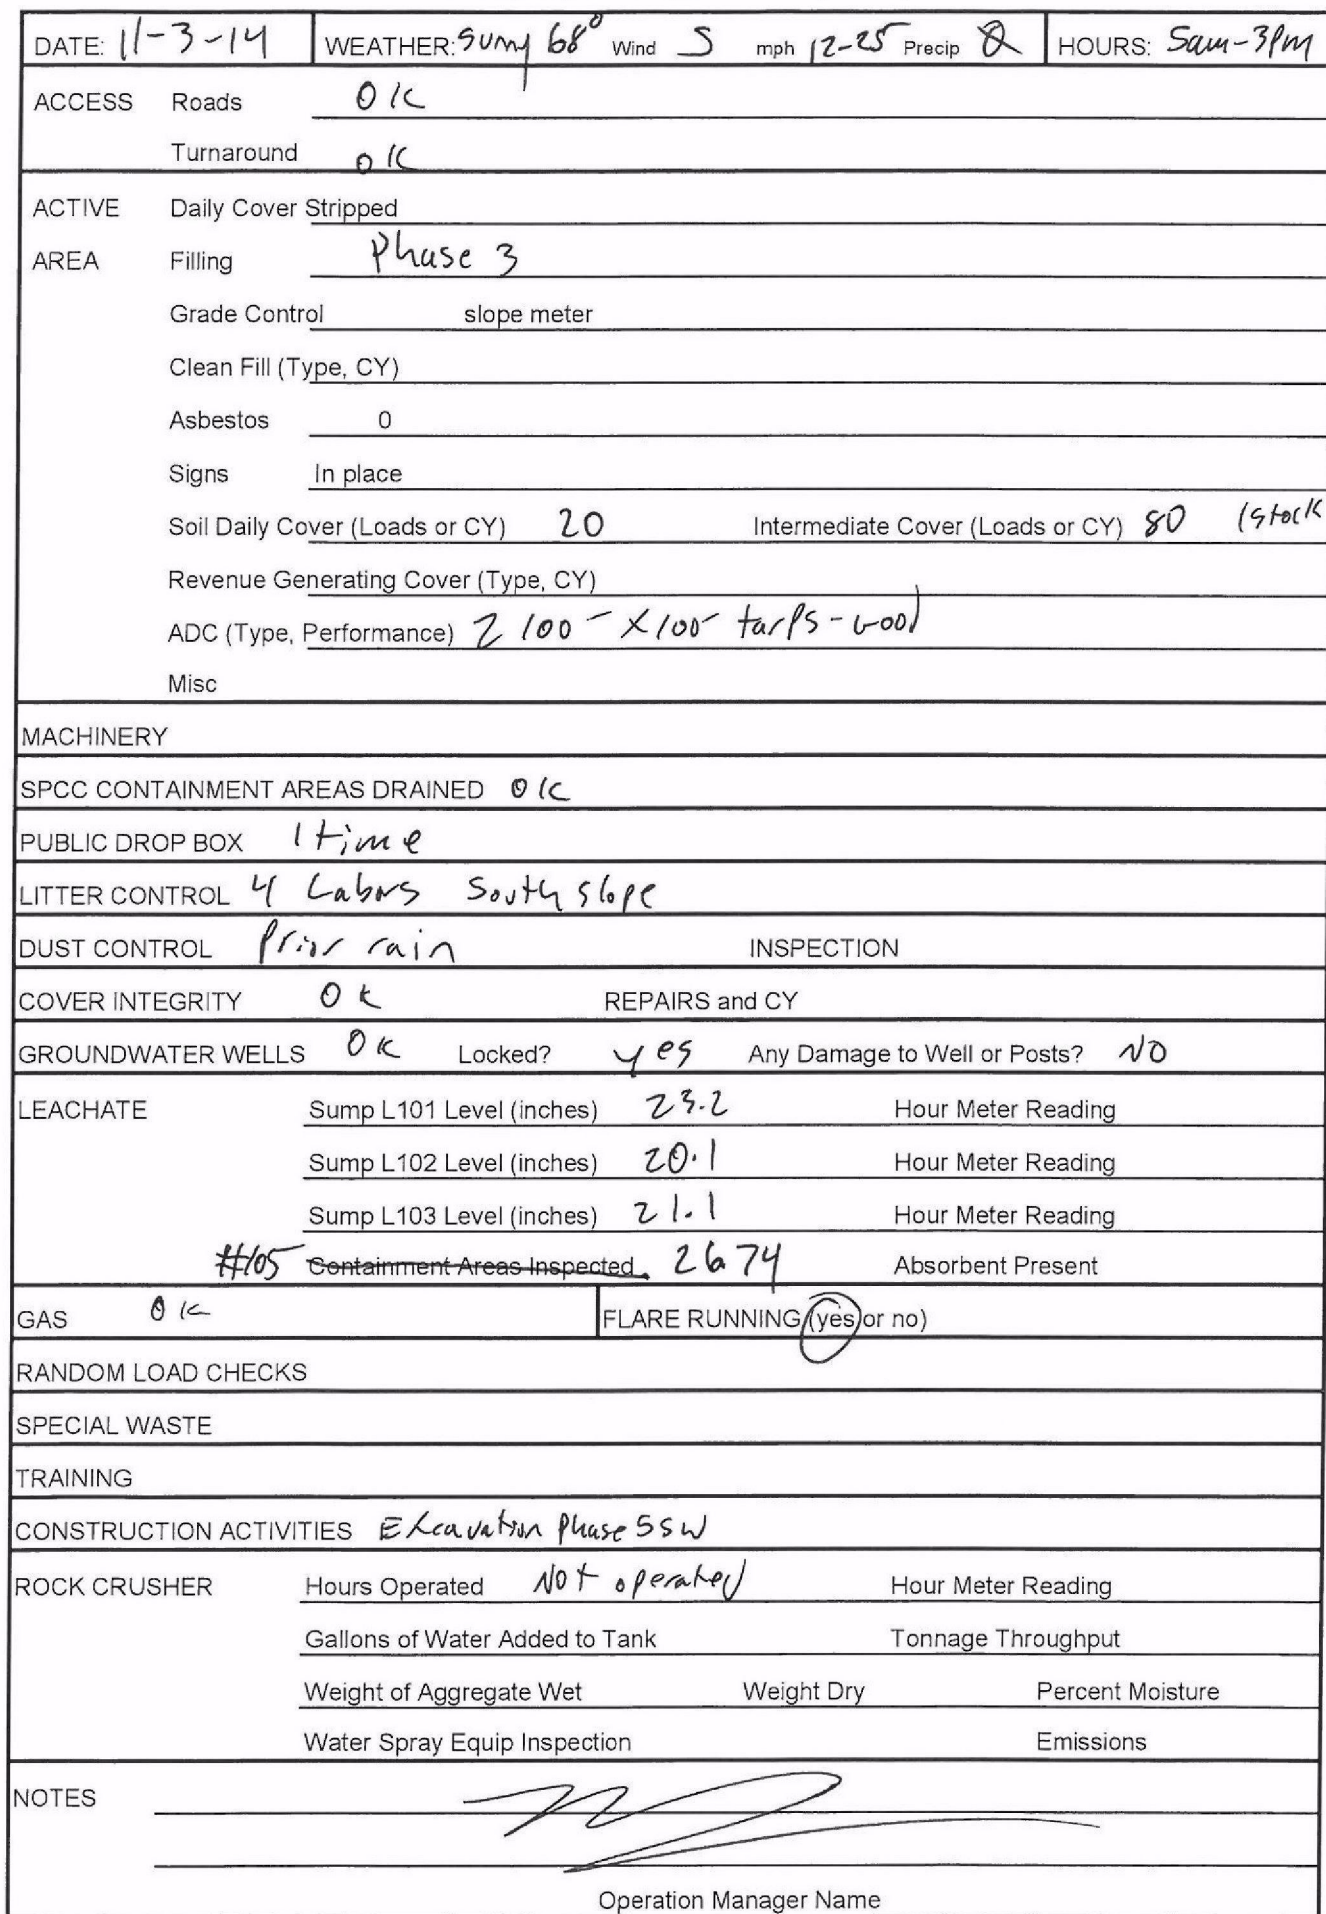 DATE: 11-3-14 WEATHER: Sunny 68° Wind S mph 12-25 Precip 0 HOURS: 5am-3pm
ACCESS Roads OK
Turnaround OK
ACTIVE Daily Cover Stripped
AREA Filling Phase 3
Grade Control slope meter
Clean Fill (Type, CY)
Asbestos 0
Signs In place
Soil Daily Cover (Loads or CY) 20 Intermediate Cover (Loads or CY) 80 (stock
Revenue Generating Cover (Type, CY)
ADC (Type, Performance) 2 100- x 100- tarps - Good
Misc
MACHINERY
SPCC CONTAINMENT AREAS DRAINED OK
PUBLIC DROP BOX 1 time
LITTER CONTROL 4 Labors South slope
DUST CONTROL Prior rain INSPECTION
COVER INTEGRITY OK REPAIRS and CY
GROUNDWATER WELLS OK Locked? yes Any Damage to Well or Posts? NO
LEACHATE Sump L101 Level (inches) 23.2 Hour Meter Reading
Sump L102 Level (inches) 20.1 Hour Meter Reading
Sump L103 Level (inches) 21.1 Hour Meter Reading
#105 Containment Areas Inspected 26.74 Absorbent Present
GAS OK FLARE RUNNING (yes or no)
RANDOM LOAD CHECKS
SPECIAL WASTE
TRAINING
CONSTRUCTION ACTIVITIES Excavation Phase 5SW
ROCK CRUSHER Hours Operated Not operated Hour Meter Reading
Gallons of Water Added to Tank Tonnage Throughput
Weight of Aggregate Wet Weight Dry Percent Moisture
Water Spray Equip Inspection Emissions
NOTES
Operation Manager Name